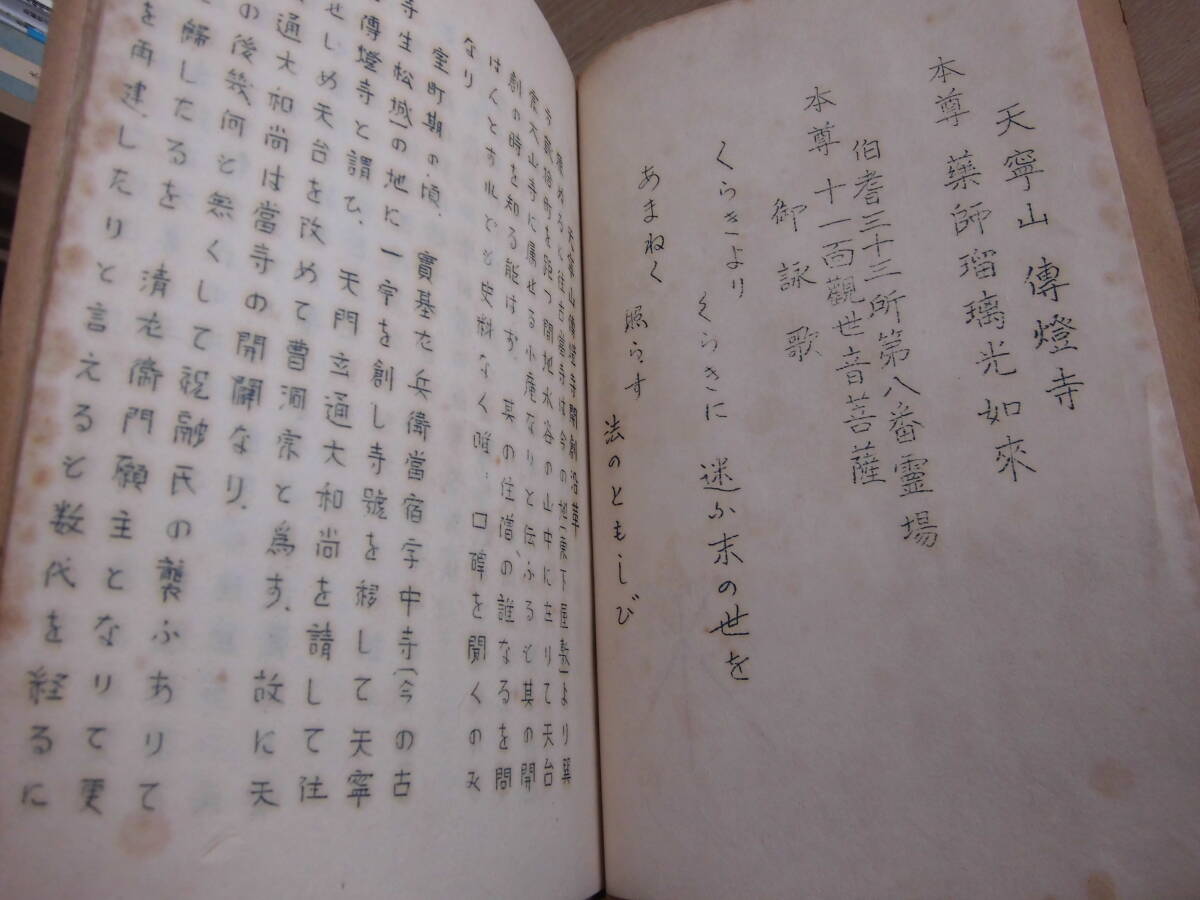 天寧山 傳燈寺
本尊 藥師瑠璃光如來
伯耆三十三所第八番靈場
本尊 十一面觀世音菩薩
御詠歌
くらきより くらきに 迷ふ末の世を
あまねく 照らす 法のともしび
天寧山傳燈寺開創沿革
住古當寺は今の地(東下屋敷)より巽
町を距つ間地水谷の山中に在りて天台
食大山寺に属せる小庵なりと伝ふるも其の開
創の時を知る能はず、其の住僧、の誰なるを問
はんとすれども史料なく唯、口碑を聞くのみ
なり
室町期の頃、實基左兵衛當宿字中寺(今の古
寺生松城)の地に一宇を創し寺號を移して天寧
傳燈寺と謂ひ、天門玄通大和尚を請して住
せしめ天台を改めて曹洞宗と爲す、故に天
通大和尚は當寺の開闢なり、
の後幾何と無くして祝融氏の襲ふありて
歸したるを 清左衛門願主となりて更
を再建、したりと言えると数代を経るに